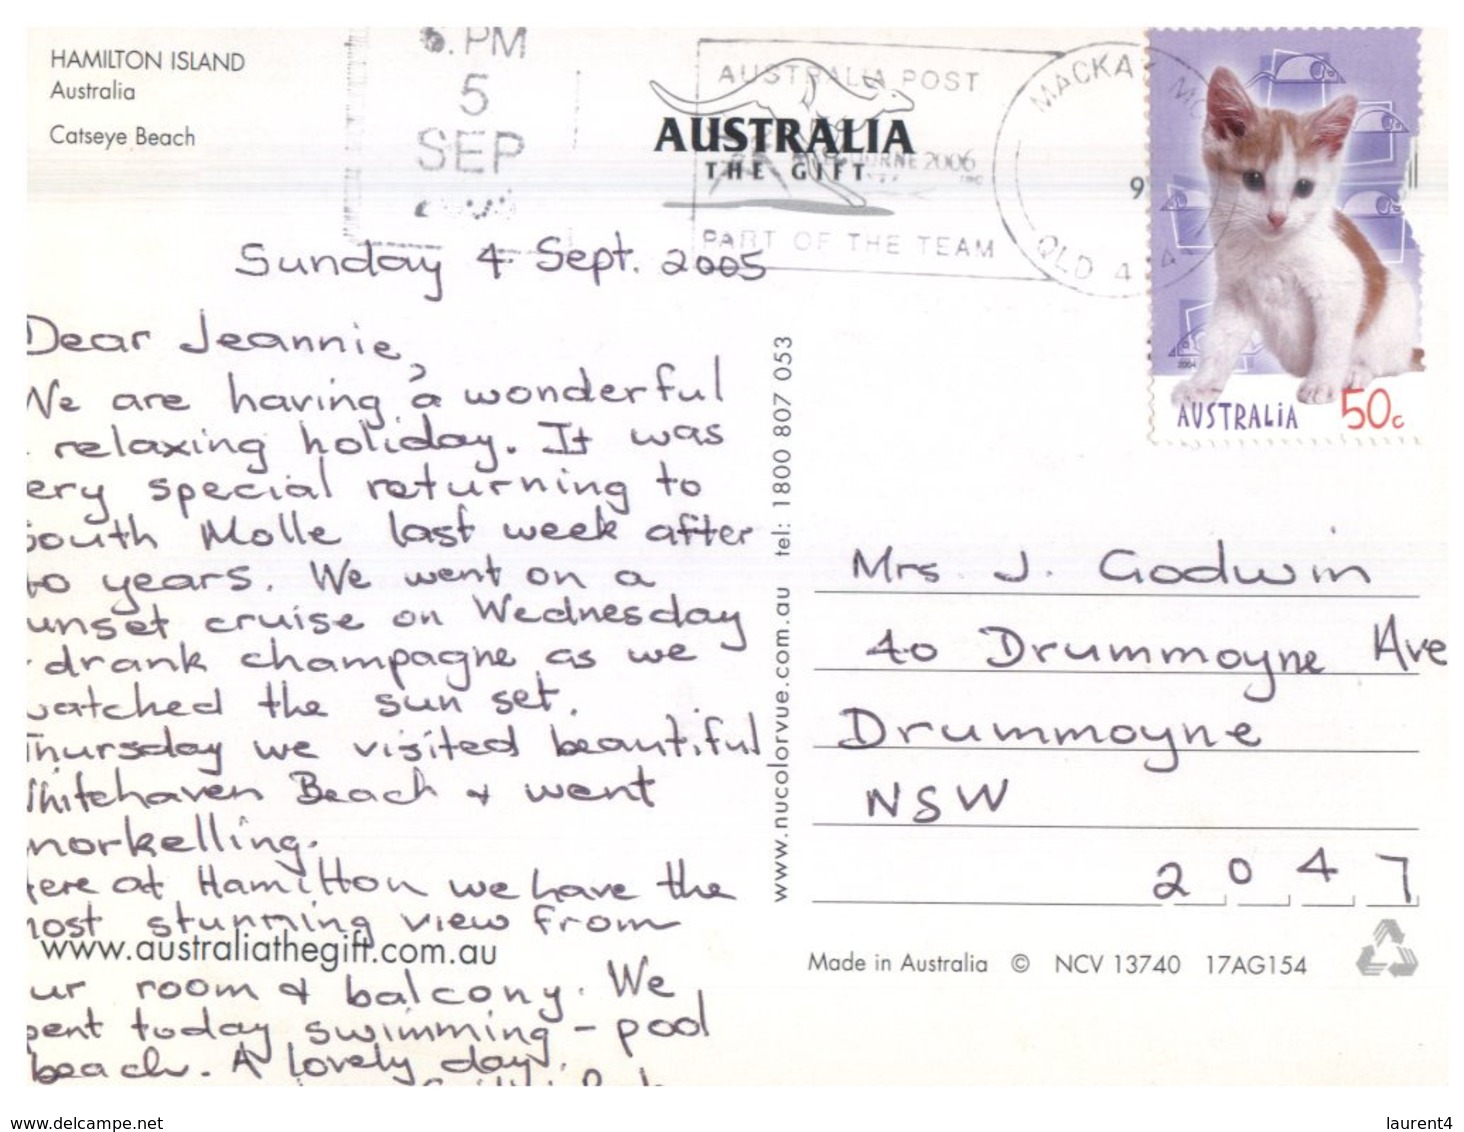 HAMILTON ISLAND
Australia
Catseye Beach
PM
5
SEP
AUSTRALIA POST
AUSTRALIA
THE GIFT
2006
PART OF THE TEAM
MACKA
QLD 4
9
2004
AUSTRALIA 50c
Sunday 4 Sept. 2005
Dear Jeannie,
We are having a wonderful
relaxing holiday. It was
ery special returning to
South Molle last week after
years. We went on a
unset cruise on Wednesday
drank champagne as we
watched the sun set.
Thursday we visited beautiful
Whitehaven Beach & went
norkelling.
ere at Hamilton we have the
most stunning view from
www.australiathegift.com.au
ur room & balcony. We
pent today swimming - pool
beach. A lovely day.
www.nucolorvue.com.au tel: 1800 807 053
Mrs. J. Godwin
40 Drummoyne Ave
Drummoyne
NSW
2047
Made in Australia © NCV 13740 17AG154
www.delcampe.net
laurent4